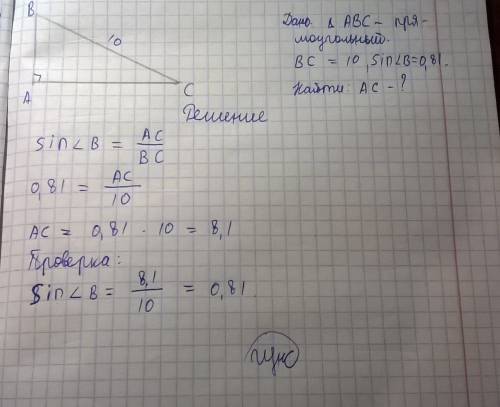 B
10
A
C
Дано: △ ABC – пря-
моугольный.
BC = 10, sin∠B=0,81.
Найти: AC - ?
Решение
sin∠B = AC/BC
0,81 = AC/10
AC = 0,81 · 10 = 8,1
Проверка:
Sin∠B = 8,1/10 = 0,81.